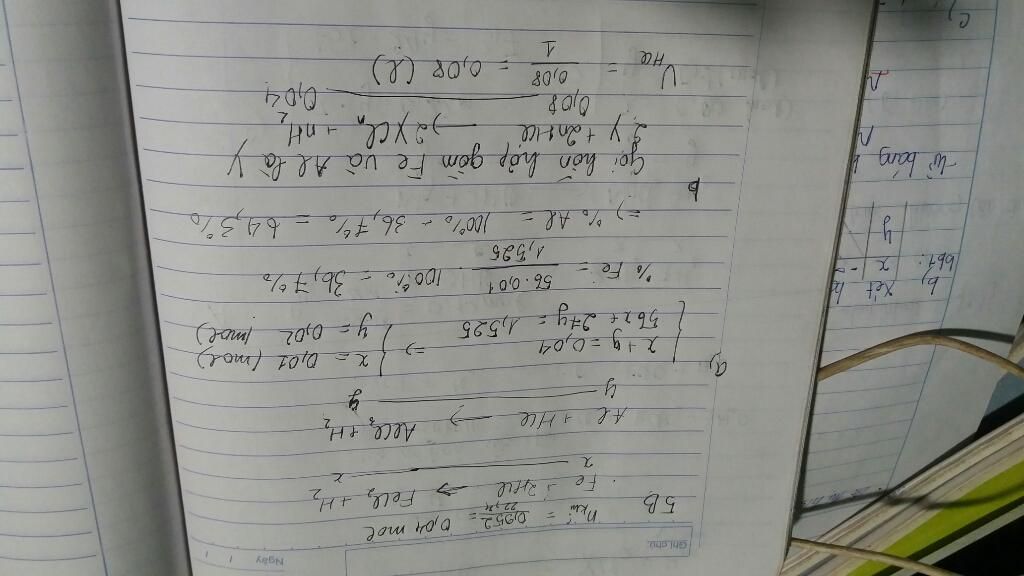 Ghi chú
Ngày
5B
n khí = 0,952/22,4 = 0,04 mol
Fe + 2HCl → FeCl2 + H2
x x
Al + HCl → AlCl3 + H2
y y
a,
{ x + y = 0,04 => { x = 0,01 (mol)
56x + 27y = 1,525 y = 0,02 (mol)
% Fe = 56.0,01/1,525 . 100% = 36,7%
=> % Al = 100% - 36,7% = 64,3%
b
Gọi hỗn hợp gồm Fe và Al là Y
2Y + 2nHCl → 2YCln + nH2
0,08 0,04
V HCl = 0,08/1 = 0,08 (l)
c,
b, Xét
bpt:
x
y
từ bảng